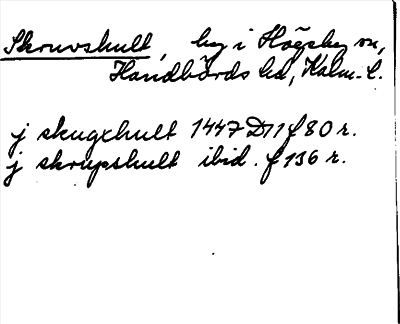 Skruvshult, by i Högsby sn,
Handbörds hd, Kalm. l.
j skugxhult 1447 D11 f 80 r.
j skrupshult ibid. f 136 r.